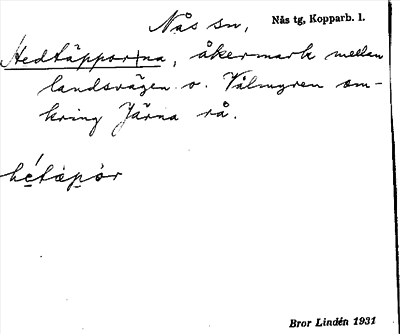 Nås sn, Nås tg, Kopparb. l.
Hedtäpporna, åkermark mellan
landsvägen o. Vålmyren om-
kring Järna rå.
hétäpòr
Bror Lindén 1931